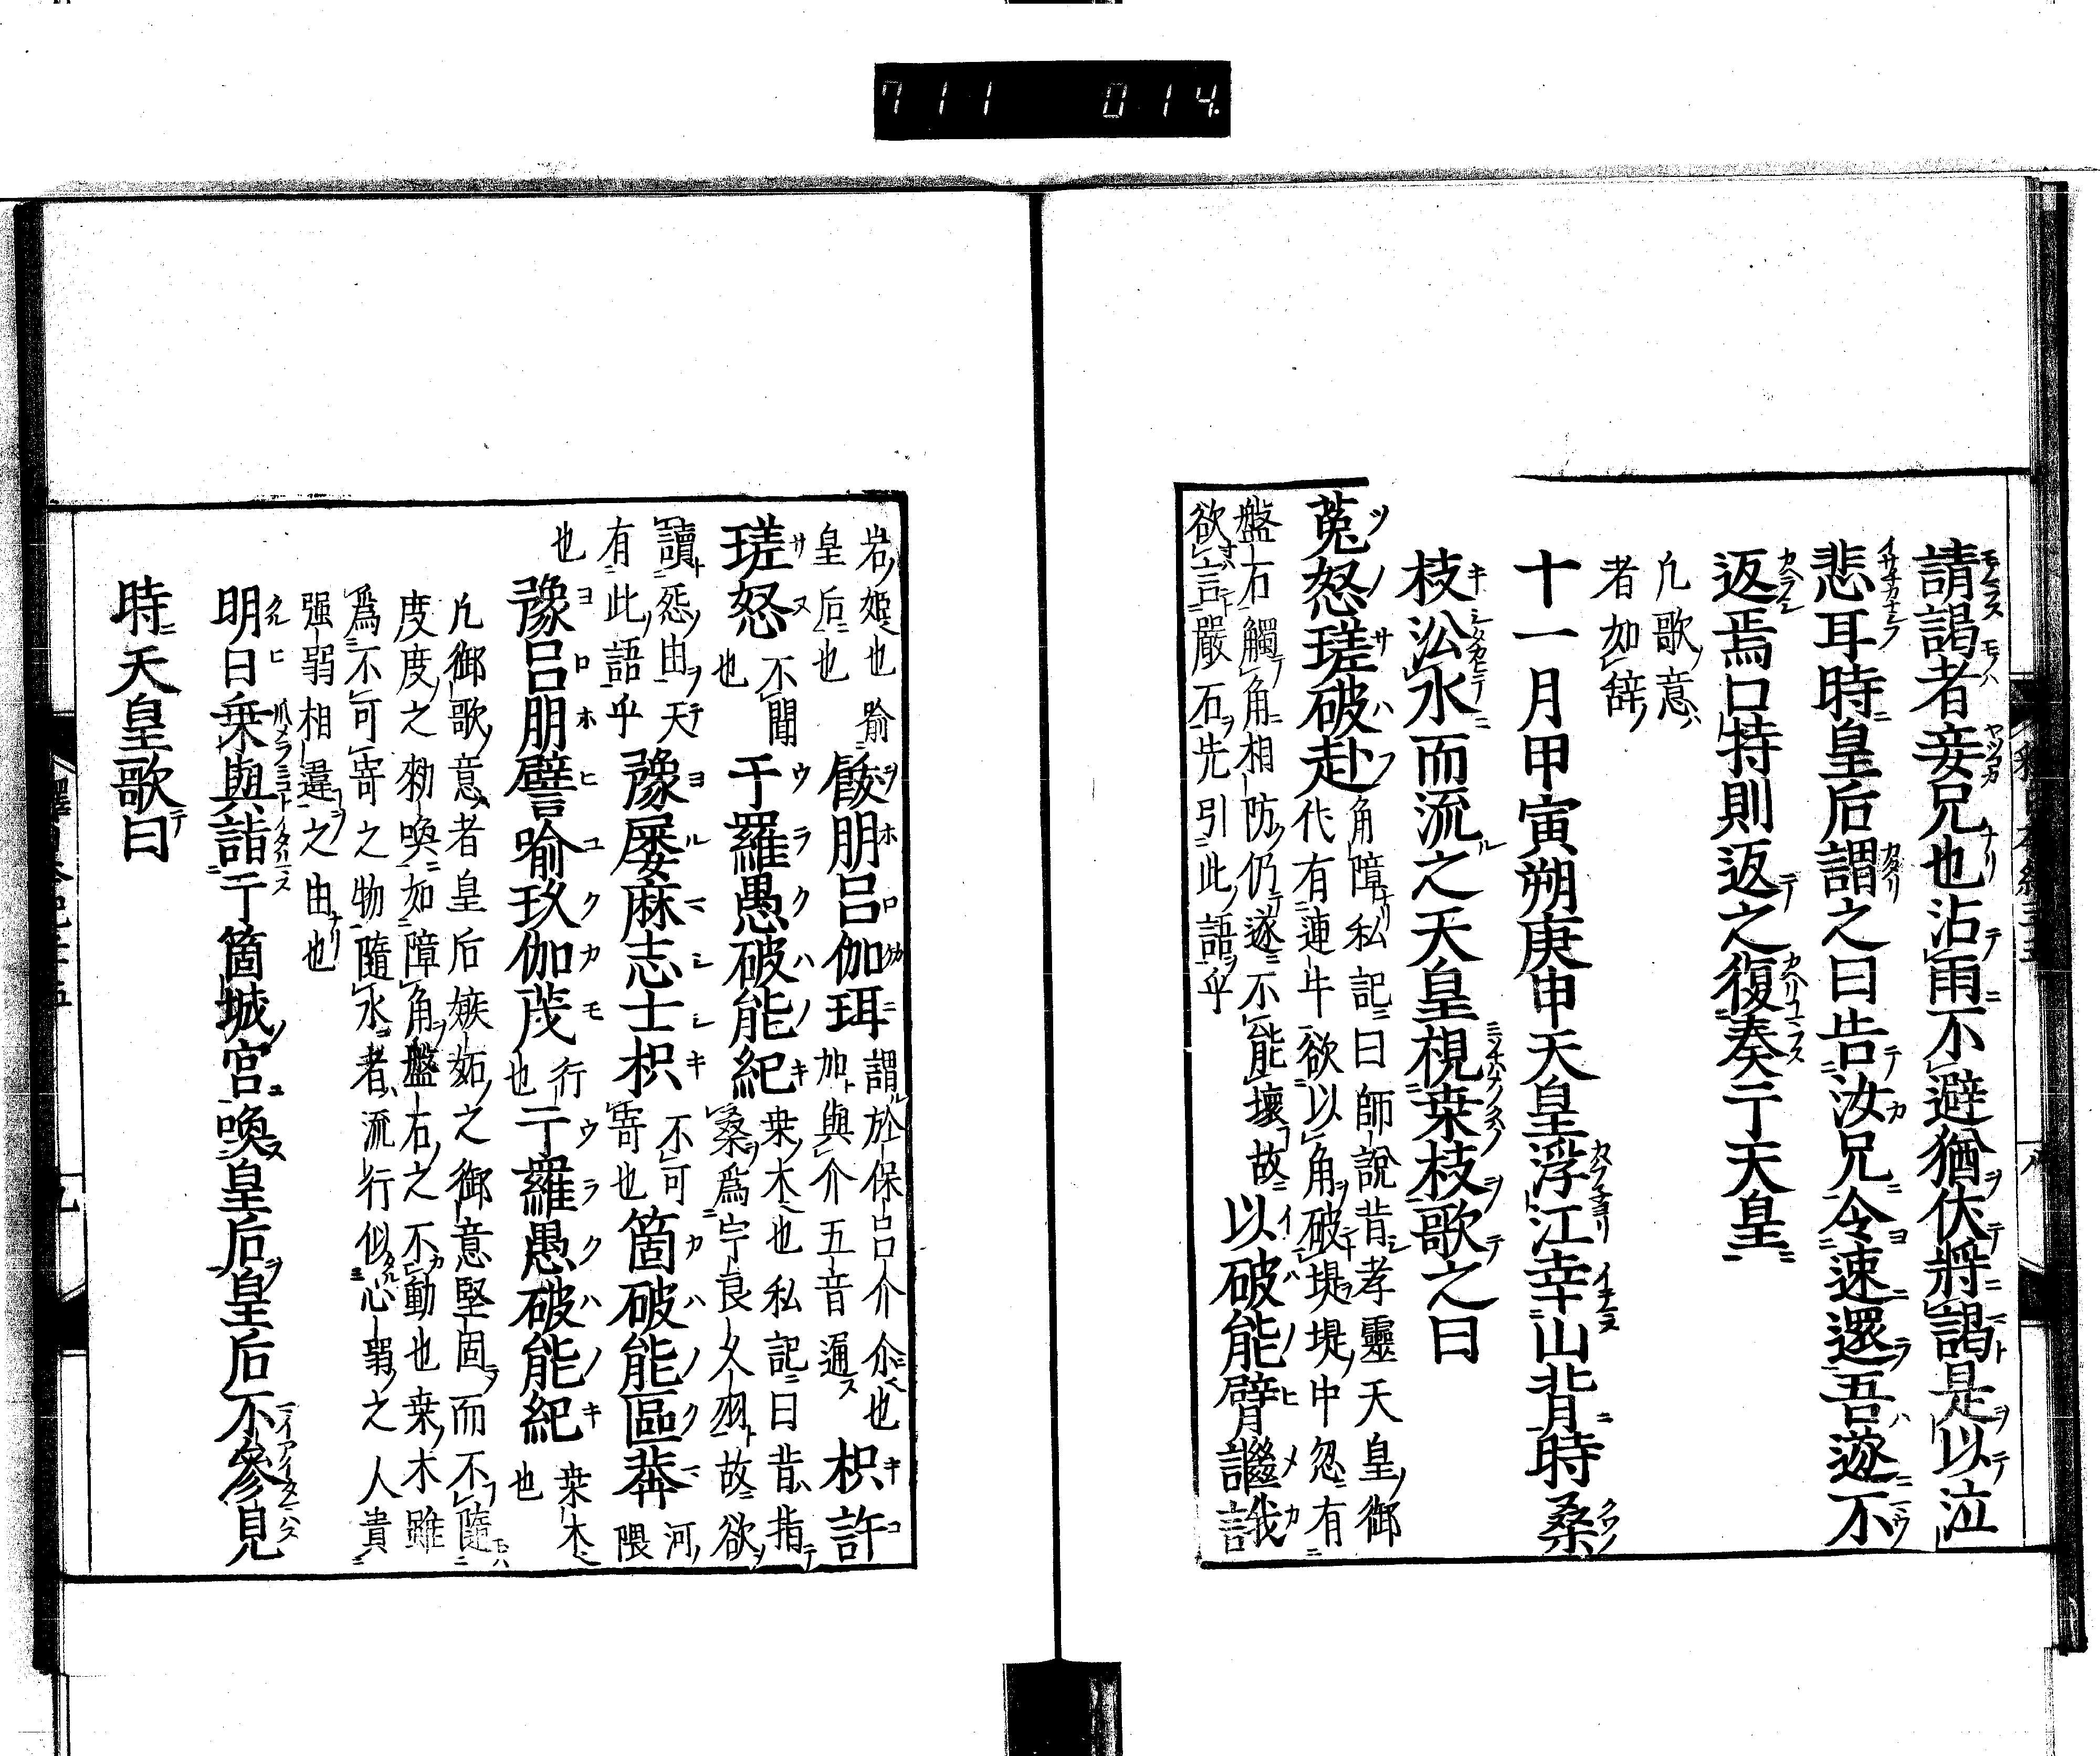 711 014
請謁者妾兄也沾雨不避猶伏將謁是以泣
悲耳時皇后謂之曰告汝兄令速還吾遂不
返焉口特則返之復奏于天皇
凢歌意
者如辞
十一月甲寅朔庚申天皇浮江幸山背時桑
枝㳂水而流之天皇視桒枝歌之曰
菟怒瑳破赴
角障私記曰師說昔孝靈天皇御
代有連牛欲以角破堤堤中忽有
盤石觸角相防仍遂不能壞故
欲言嚴石先引此語乎
以破能臂謎餓
岩姫也
皇后也
飫朋呂伽珥
謂於保呂介
加與介五音通
尒也
枳許
瑳怒
不聞
也
于羅愚破能紀
桒木也私記曰昔指
桑爲宇良久羽故欲
讀怨由天
有此語乎
也
豫屢麻志士枳
不可
寄也
箇破能區莽
河
隈
豫呂朋譬喻玖伽茂
行
也
于羅愚破能紀
桒木
也
凢御歌意者皇后嫉妬之御意堅固而不隨
度度之勑喚如障角盤石之不動也桒木雖
爲不可寄之物隨水者流行似心弱之人貴
强弱相違之由也
明日乗輿詣于箇城宮喚皇后皇后不參見
時天皇歌曰